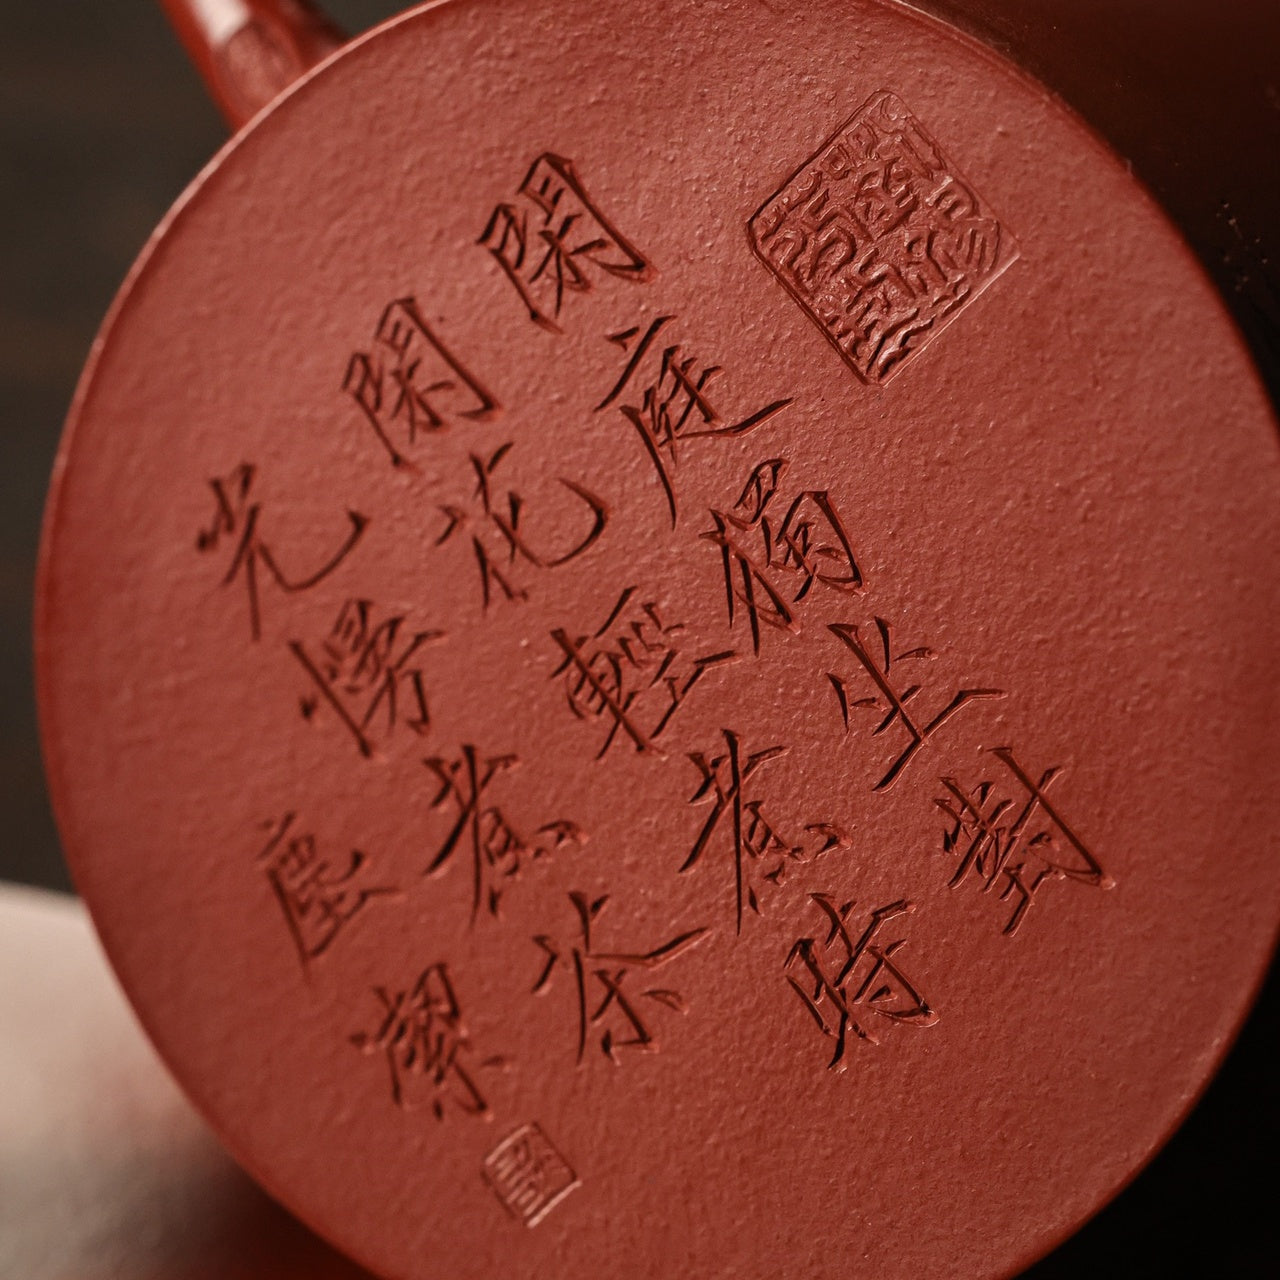 閑庭獨坐對
閑花輕煮時
光慢煮茶
塵潔